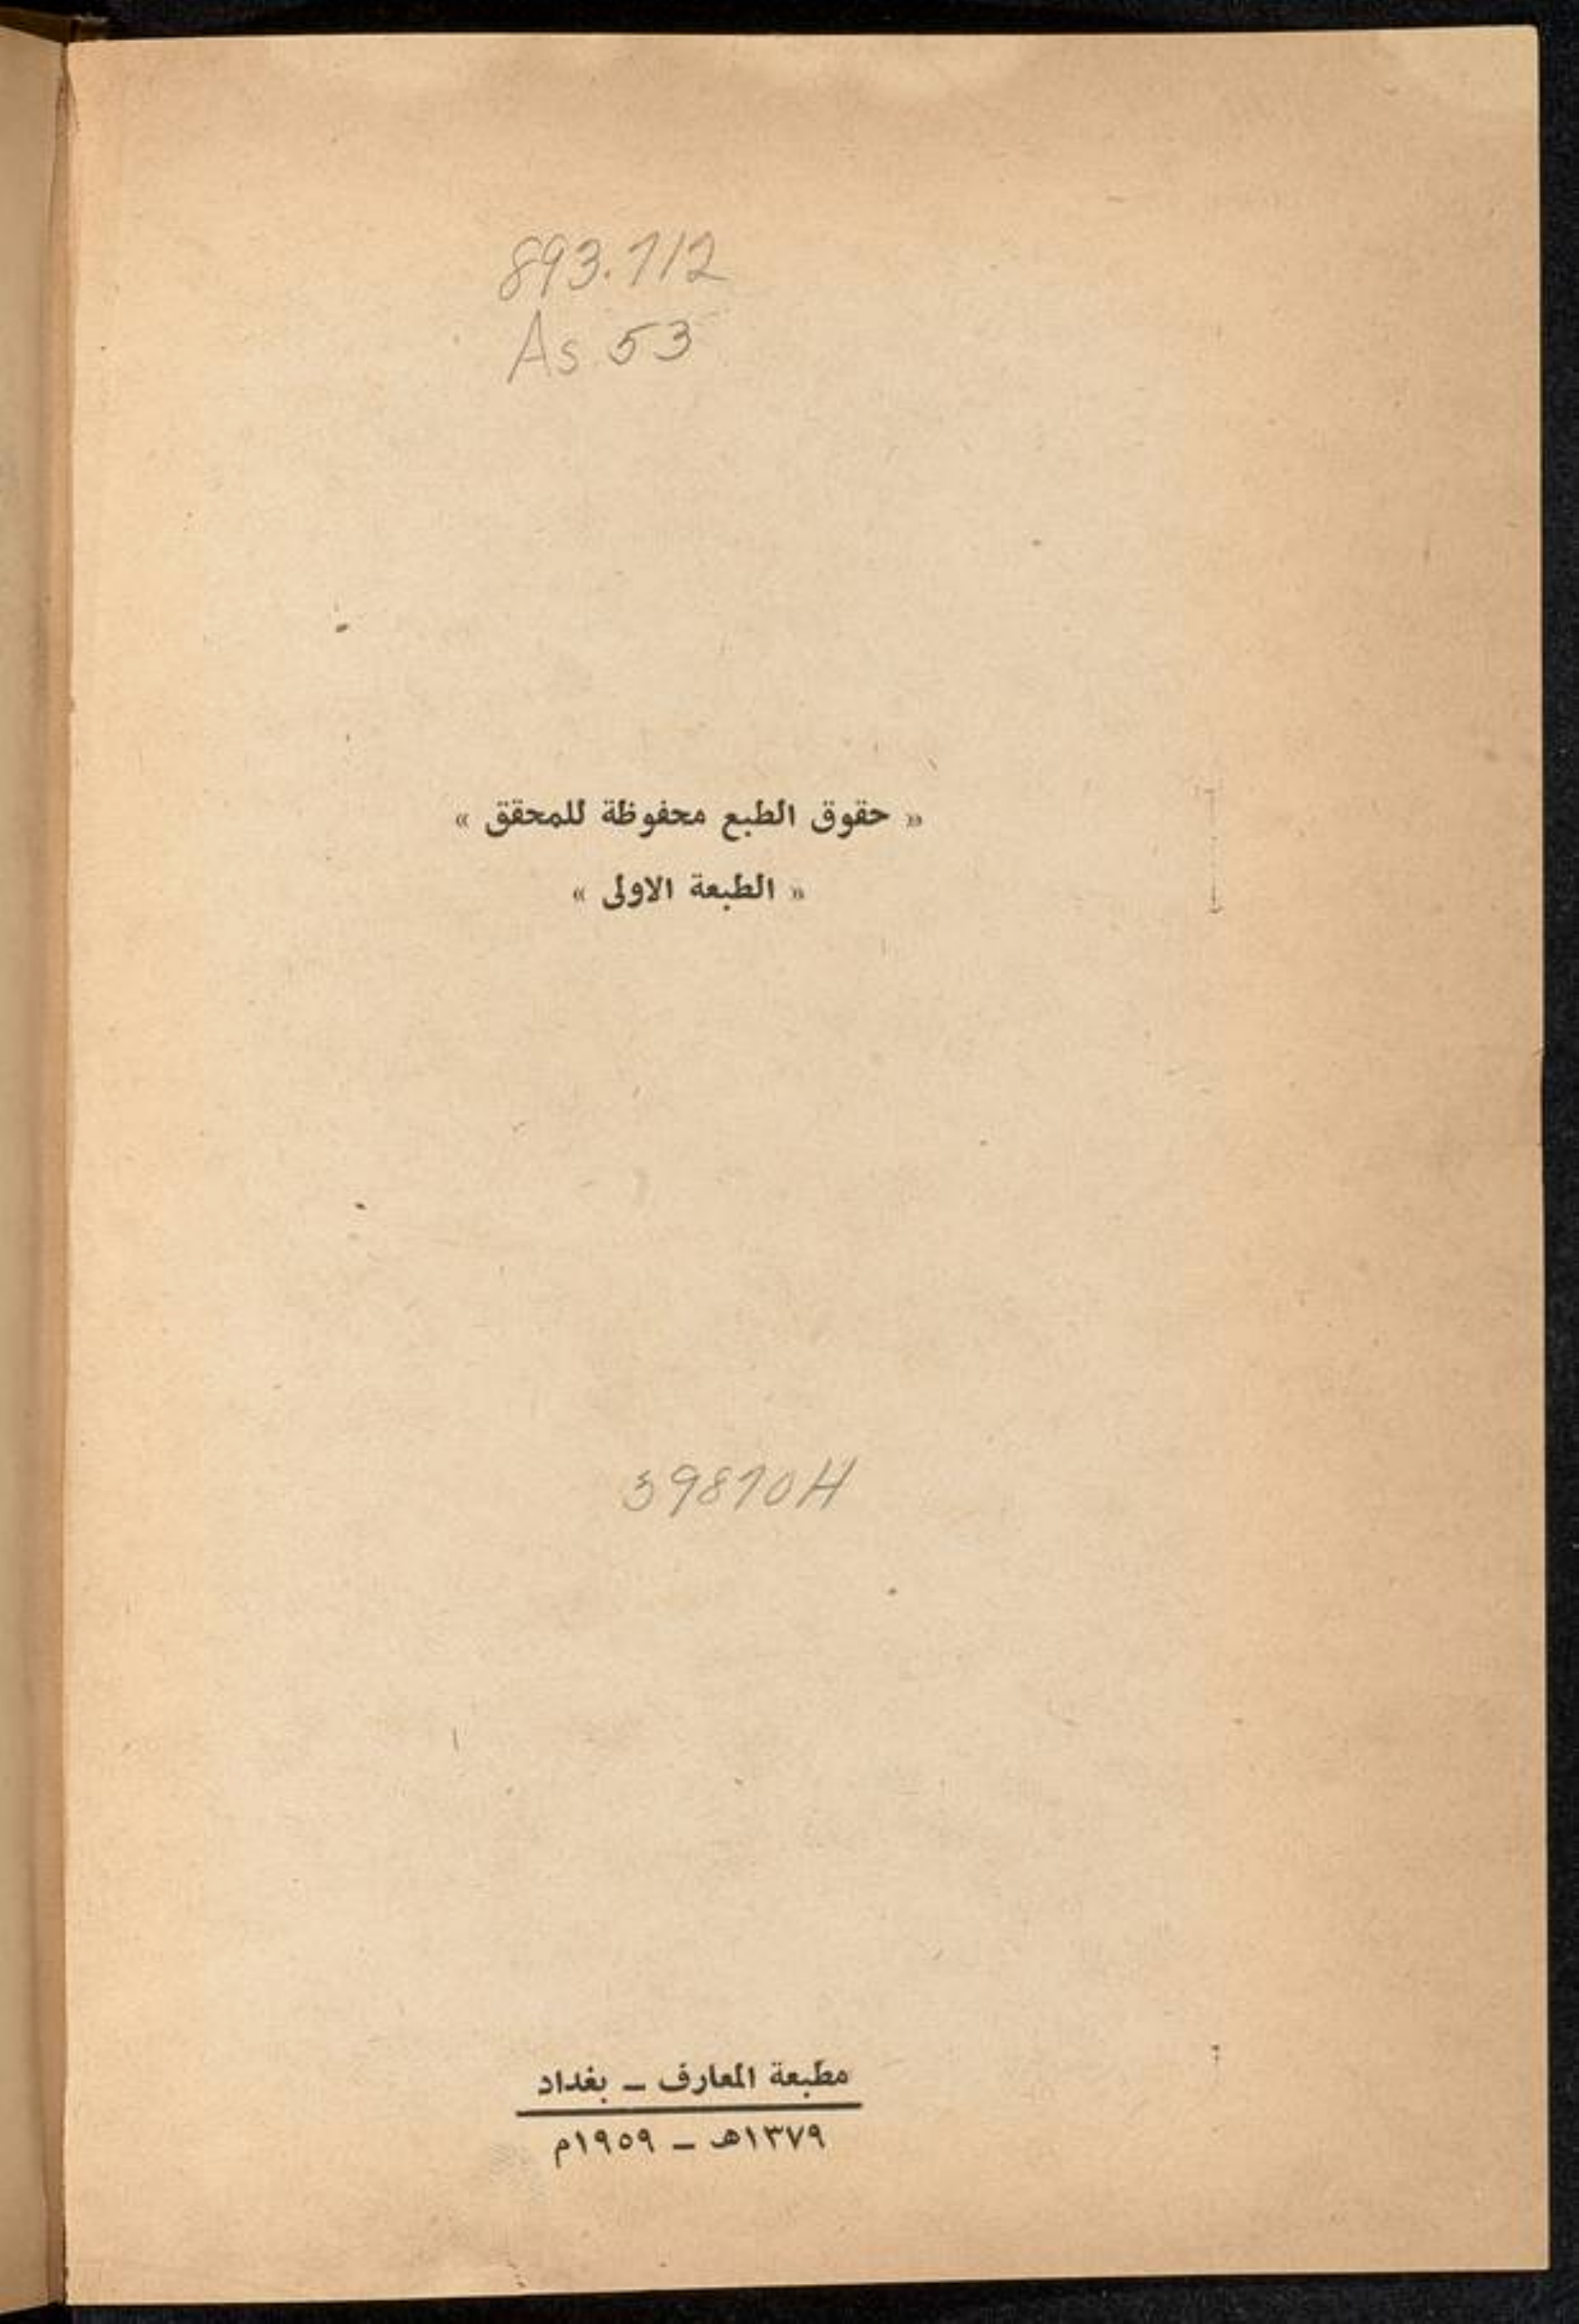 893.712
As 53
« حقوق الطبع محفوظة للمحقق »
« الطبعة الاولى »
39870H
مطبعة المعارف ـ بغداد
١٣٧٩هـ ـ ١٩٥٩م